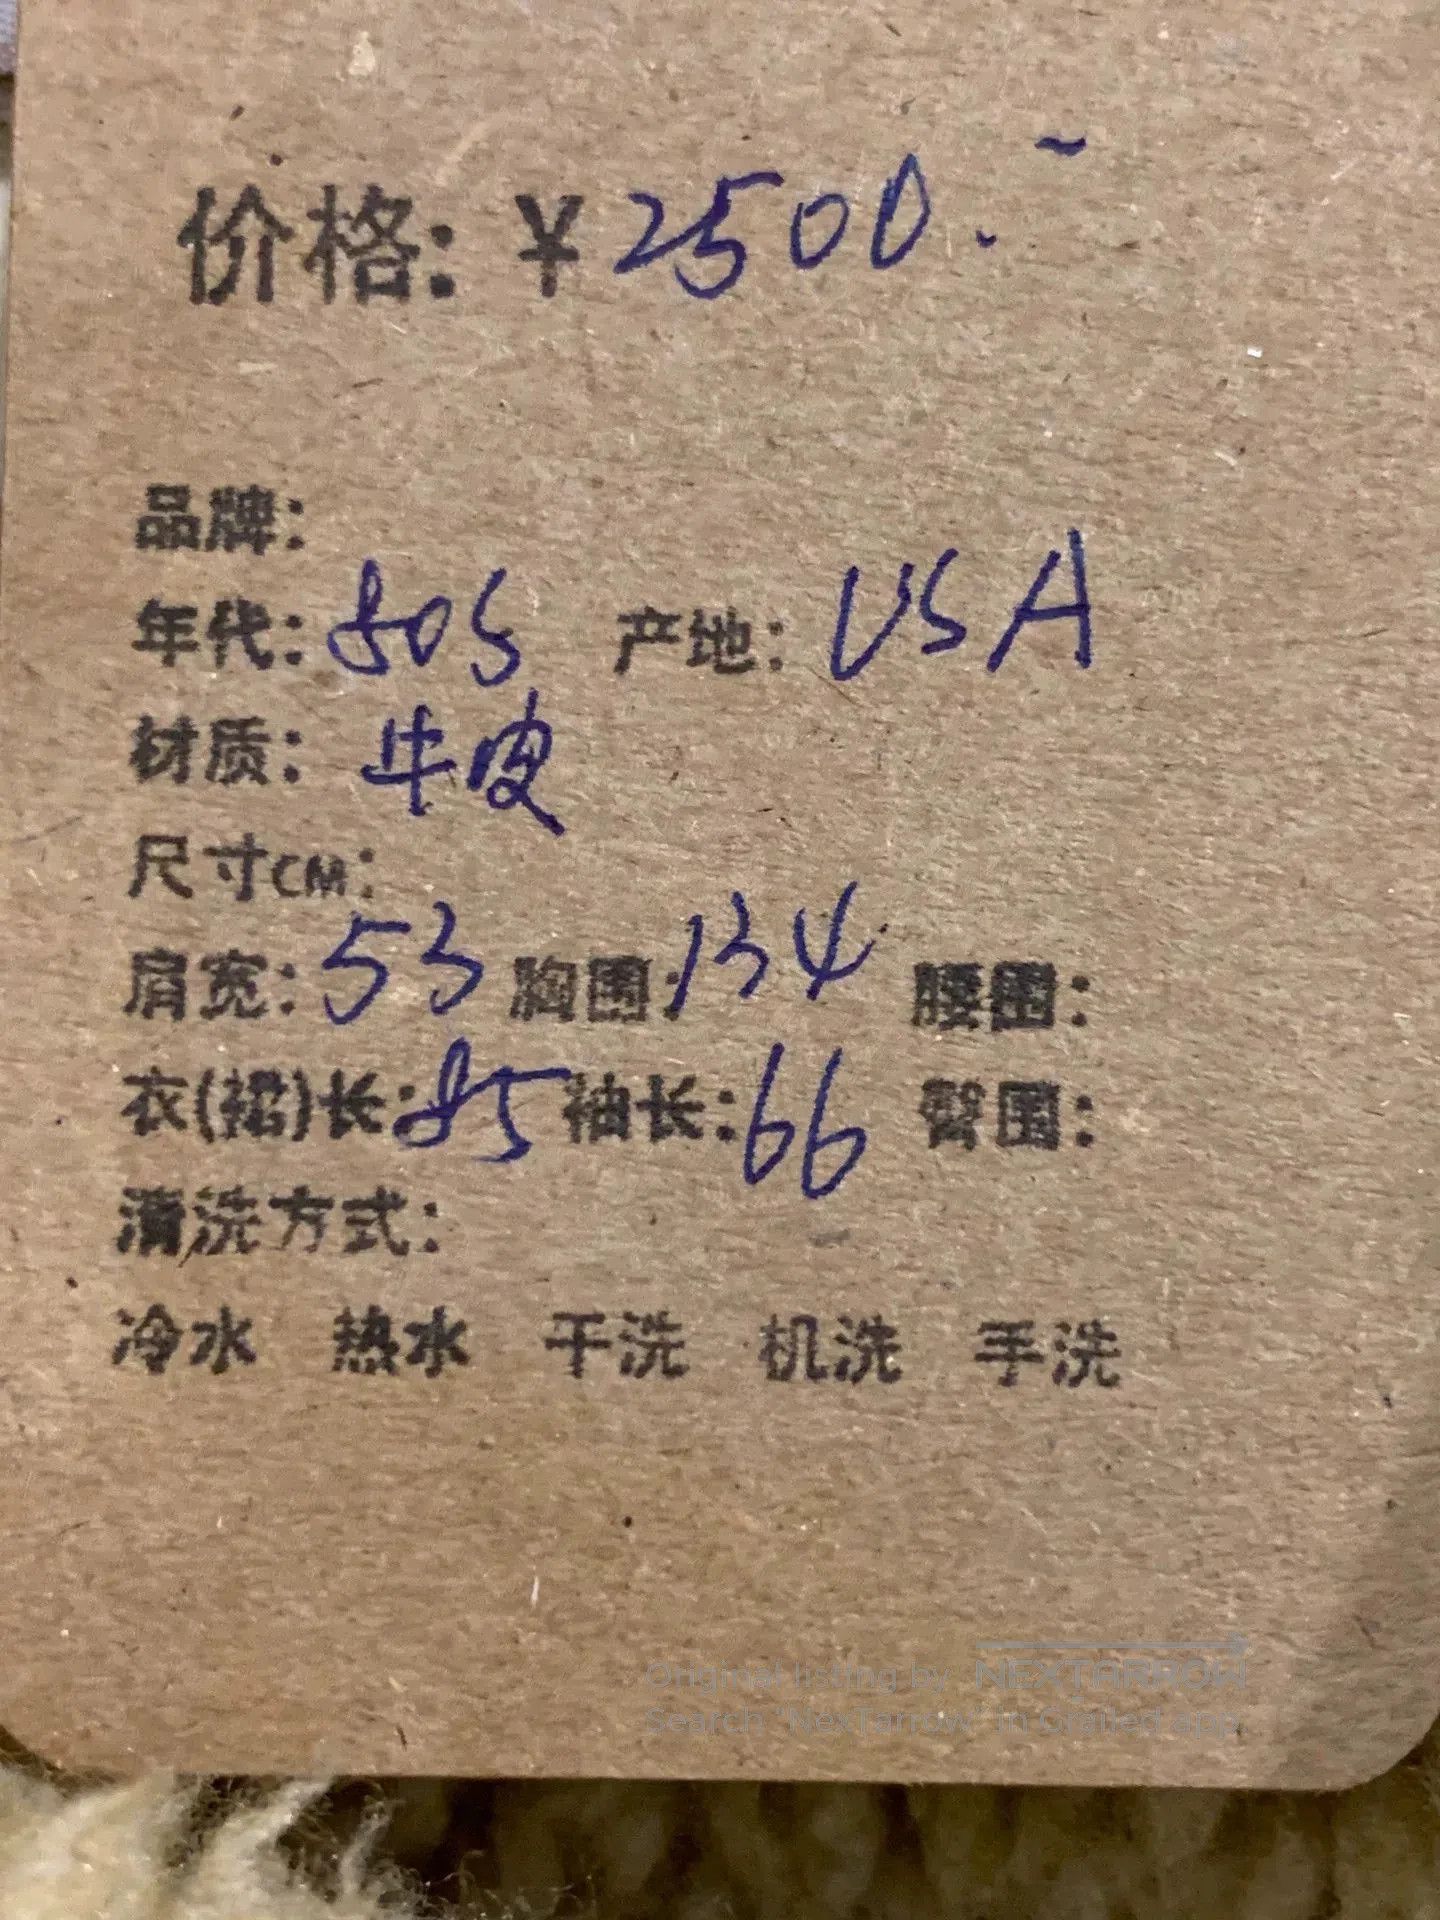 价格: ¥2500.-
品牌:
年代: 80S 产地: USA
材质: 牛皮
尺寸CM:
肩宽: 53 胸围: 134 腰围:
衣(裙)长: 85 袖长: 66 臀围:
清洗方式:
冷水 热水 干洗 机洗 手洗
Original listing by NEXTARROW
Search "NexTarrow" in Grailed app.